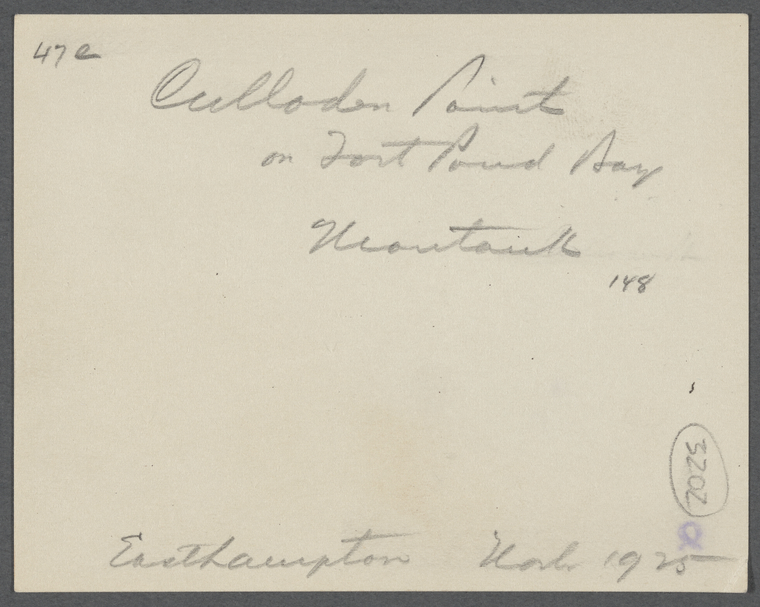 47c
Culloden Point
on Fort Pond Bay
Montauk
148
2025
Easthampton 1925